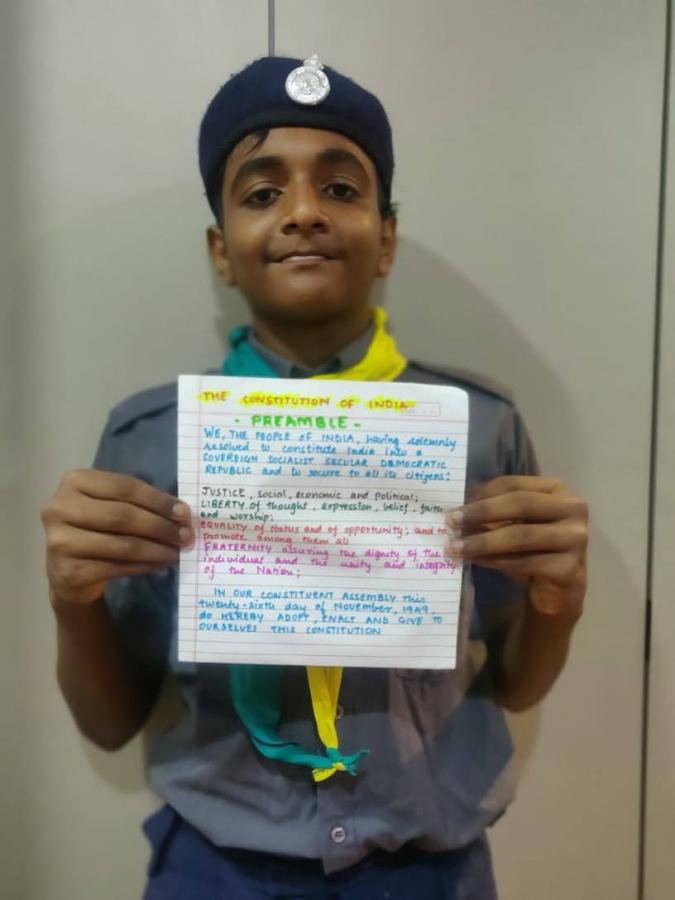 THE CONSTITUTION OF INDIA
- PREAMBLE -
WE, THE PEOPLE OF INDIA, having solemnly
resolved to constitute India into a
SOVEREIGN SOCIALIST SECULAR DEMOCRATIC
REPUBLIC and to secure to all its citizens:
JUSTICE, social, economic and political;
LIBERTY of thought, expression, belief, faith
and worship;
EQUALITY of status and of opportunity; and to
promote among them all
FRATERNITY assuring the dignity of the
individual and the unity and integrity
of the Nation;
IN OUR CONSTITUENT ASSEMBLY this
twenty-sixth day of November, 1949.
do HEREBY ADOPT, ENACT AND GIVE TO
OURSELVES THIS CONSTITUTION